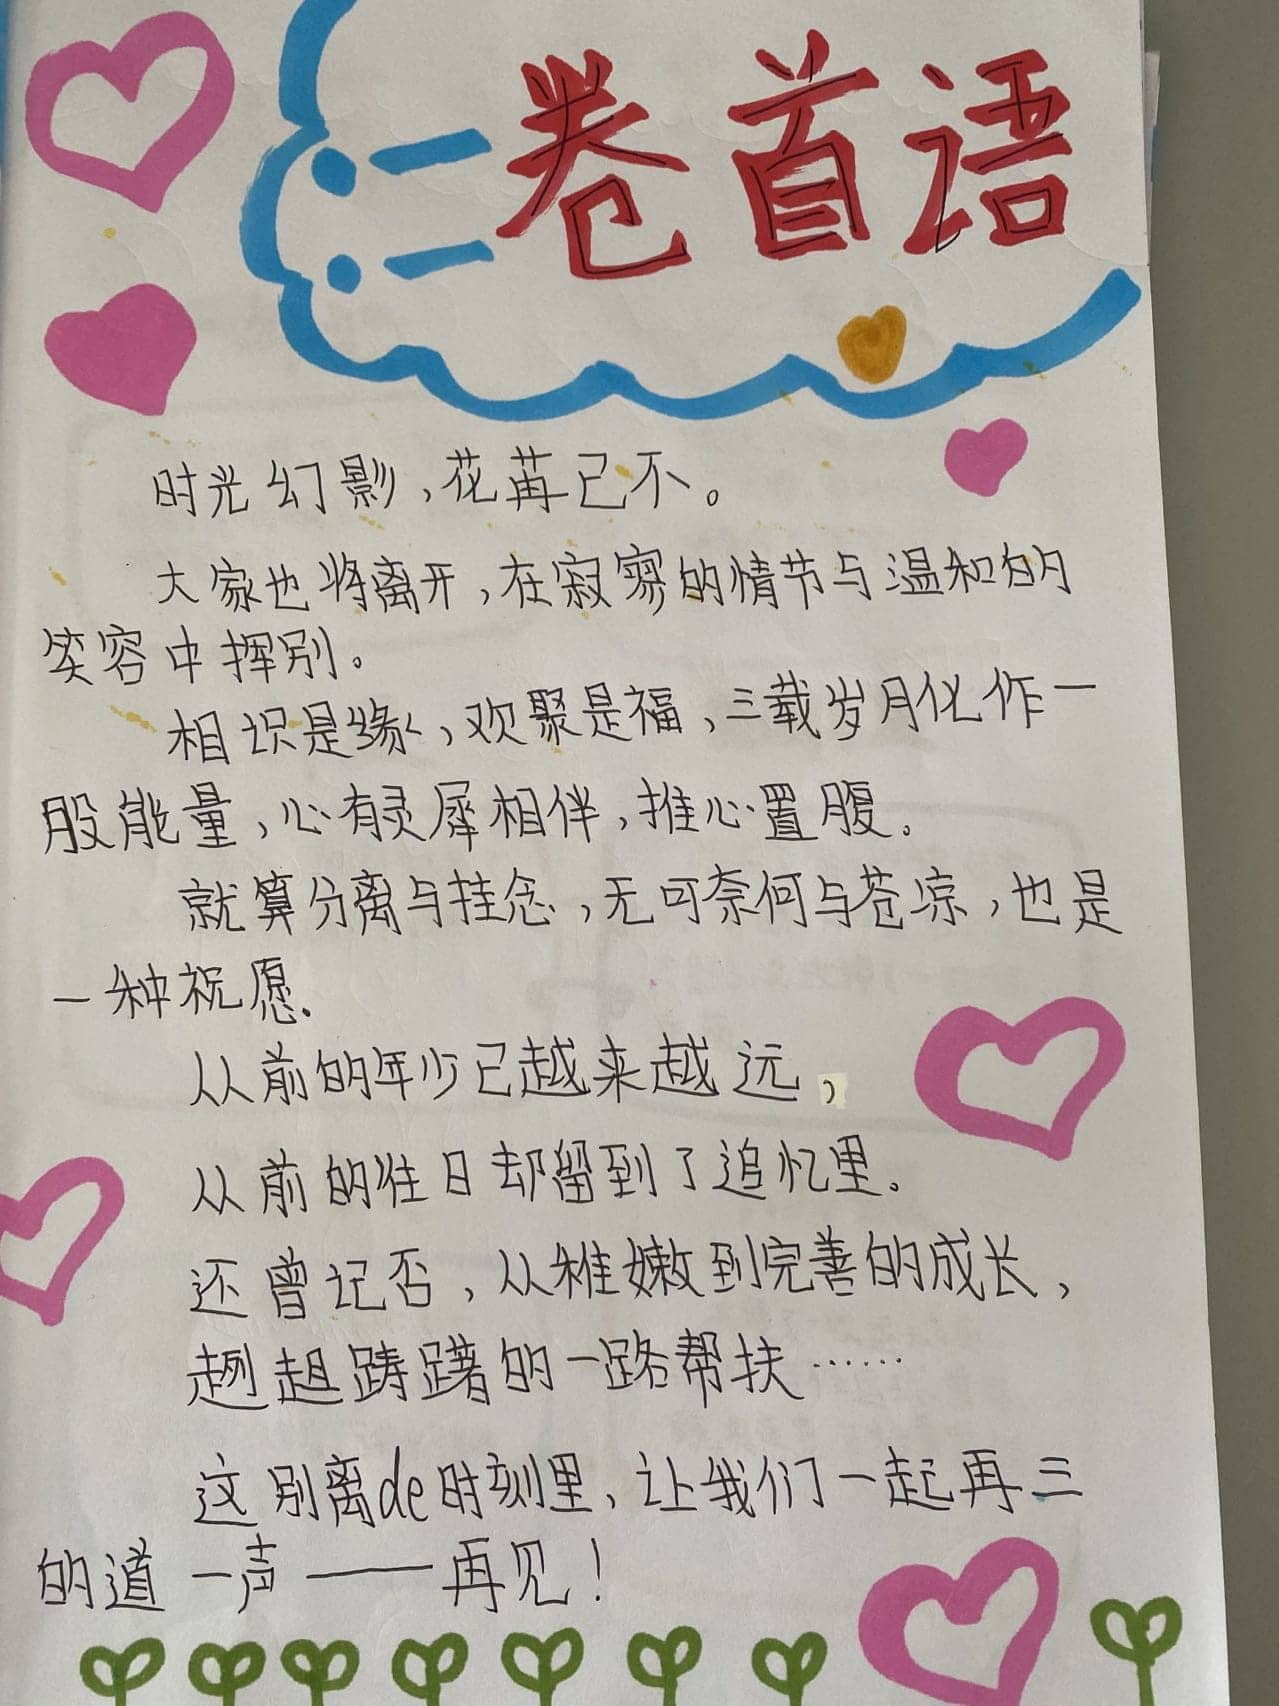 卷首语
时光幻影，花苒已不。
大家也将离开，在寂寞的情节与温和的
笑容中挥别。
相识是缘，欢聚是福，三载岁月化作一
股能量，心有灵犀相伴，推心置腹。
就算分离与挂念，无可奈何与苍凉，也是
一种祝愿.
从前的年少已越来越远，
从前的往日却留到了追忆里。
还曾记否，从稚嫩到完善的成长，
趔趄踌躇的一路帮扶……
这别离de时刻里，让我们一起再三
的道一声——再见！